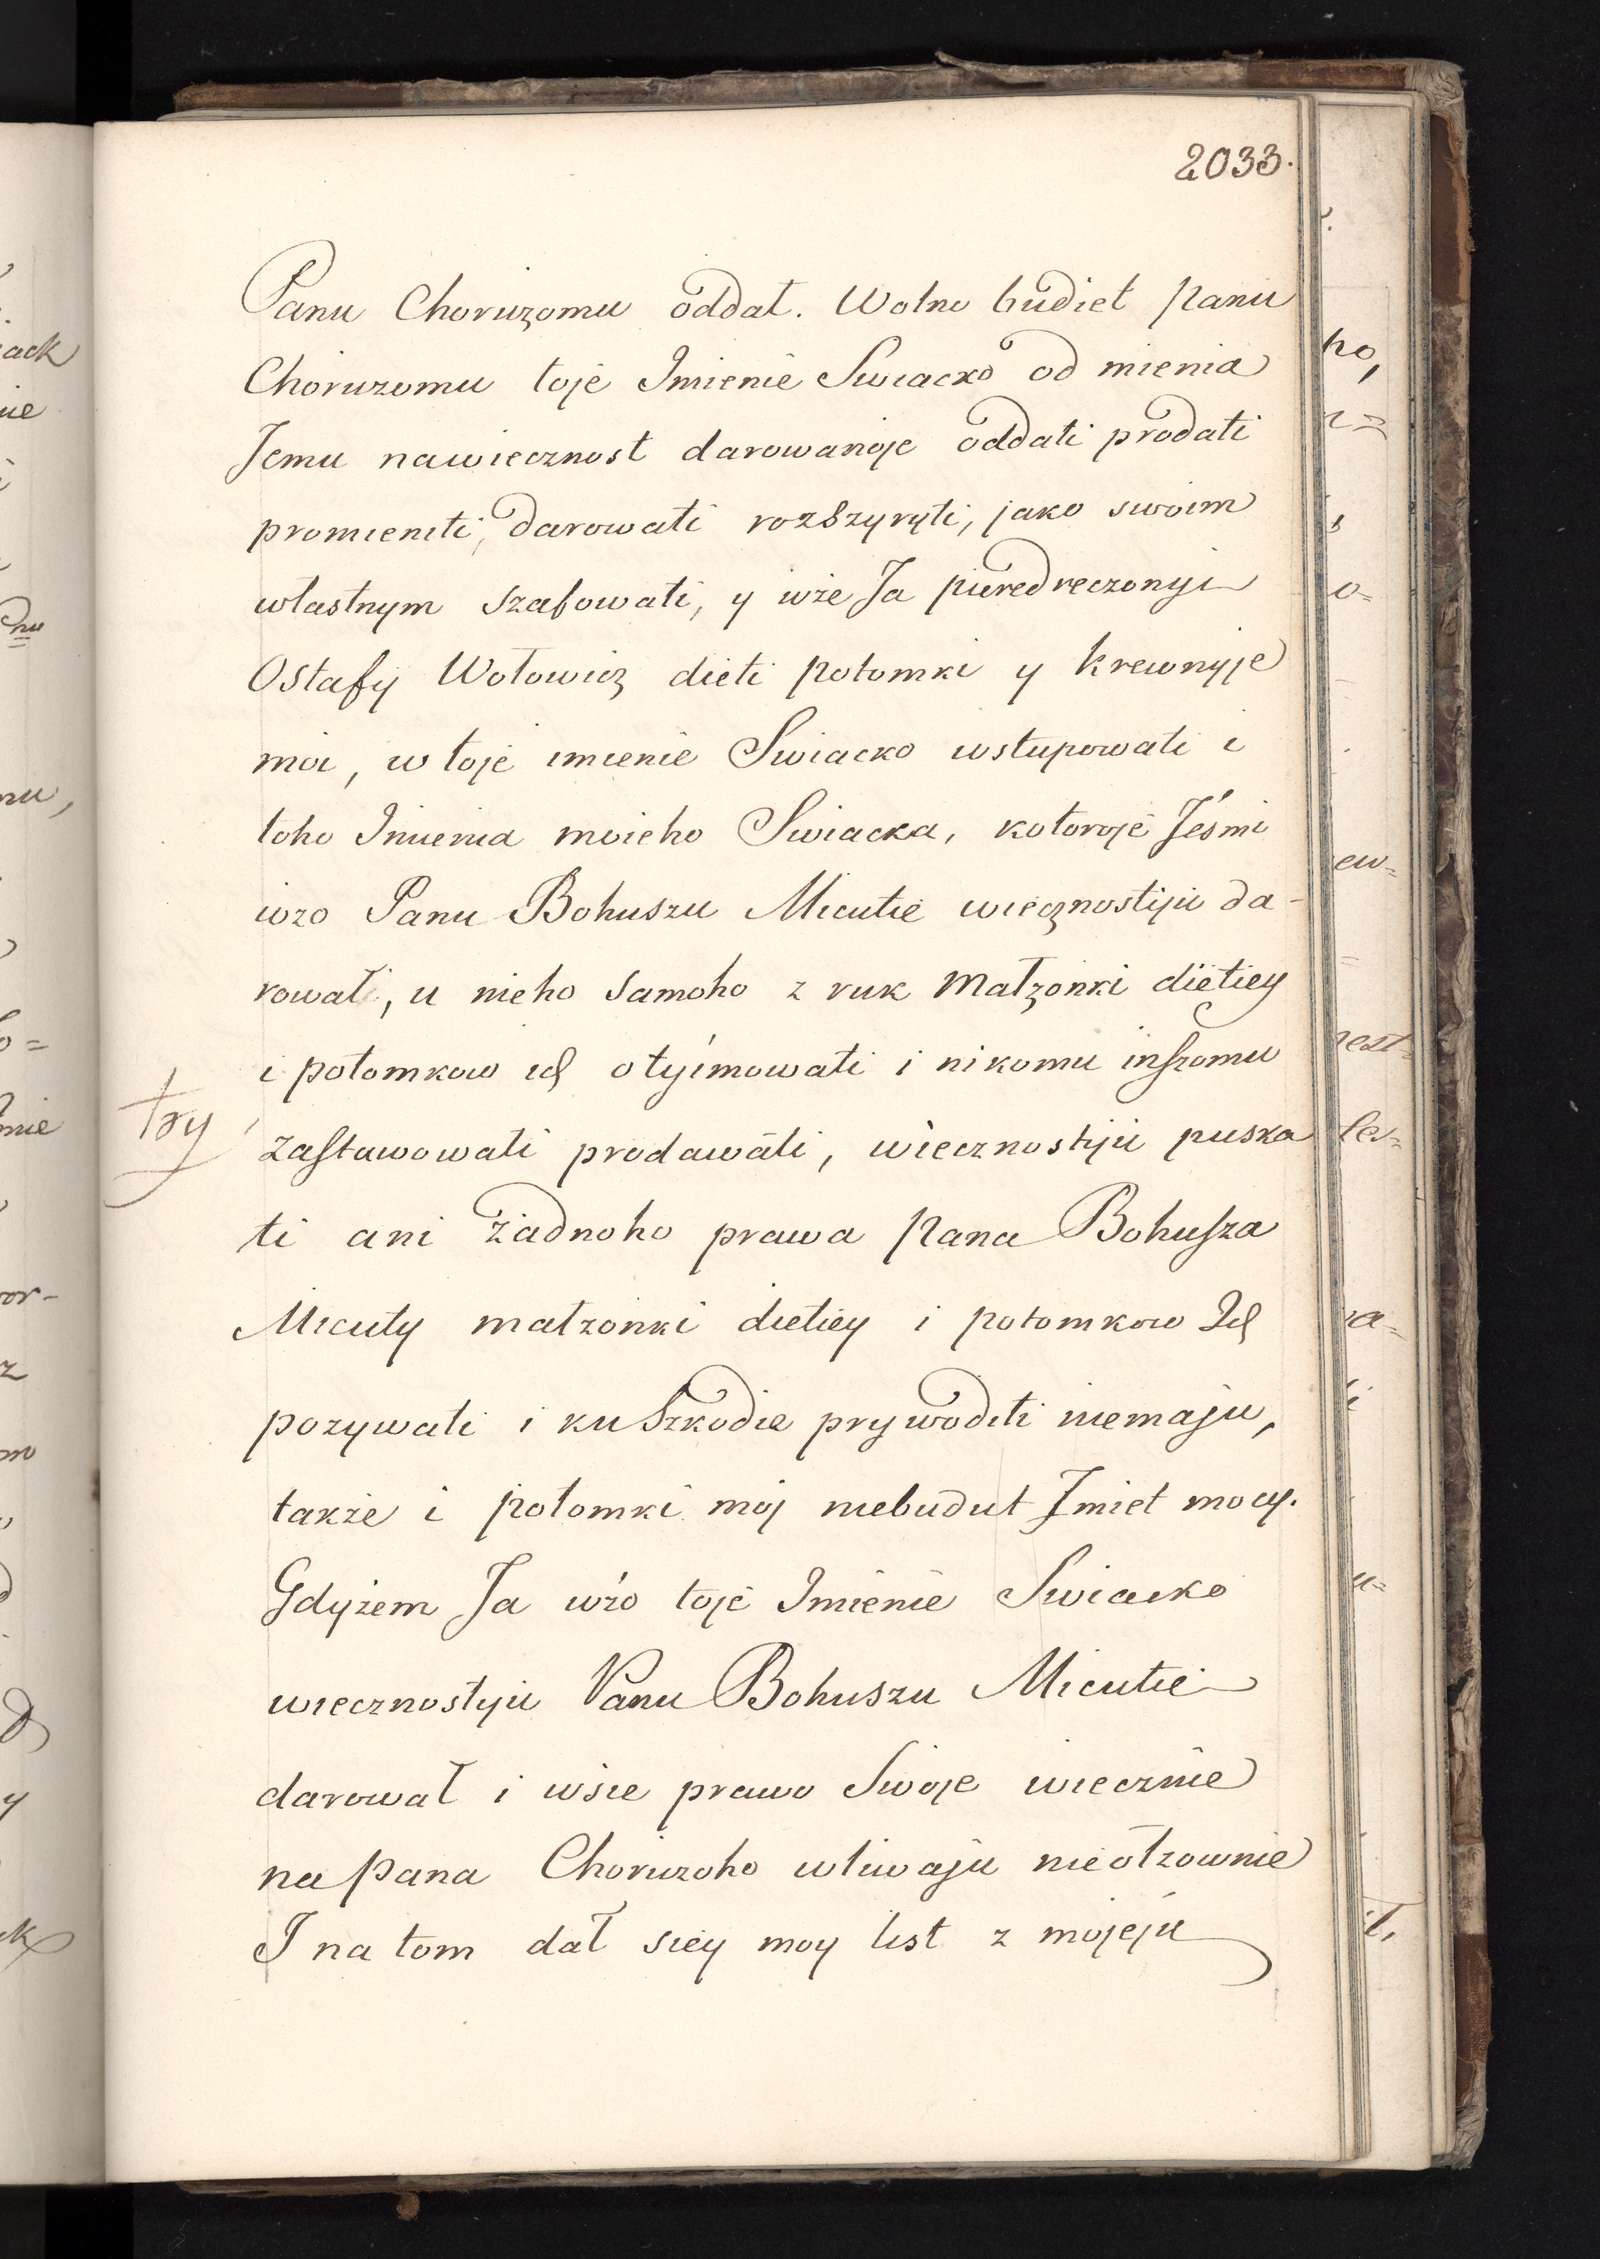 2033.
Panu Choruzomu oddał. Wolno budiet Panu
Choruzomu toje Imienie Swiacko od mienia
Jemu nawiecznost darowanoje oddati prodati
promieniti, darowati rozszyryti, jako swoim
własnym szafowati, y wże Ja pieredreczonyi
Ostafy Wołowicz dieti potomki y Krewnyje
moi, w toje imienie Swiacko wstupowati i
toho Imienia moieho Swiacka, kotoroje Jeśmi
wzo Panu Bohuszu Micutie wiecznostiju da-
rował, u nieho samoho z ruk Małzonki dietiey
i potomkow ich otyimowati i nikomu inszomu
try
zastawowati prodawati, wiecznostiju puska
ti ani żadnoho prawa Pana Bohusza
Micuty małżonki dietiey i potomkow Ich
pozywati i ku Szkodie prywoditi niemaju,
także i potomki moj niebudut Imiet mocy.
Gdyżem Ja wżo toje Imienie Swiacko
wiecznostyju Panu Bohuszu Micutie
darował i wsie prawo Swoje wiecznie
na Pana Choruzoho wliwaju nieotzownie
I na tom dał siey moy list z mojeju